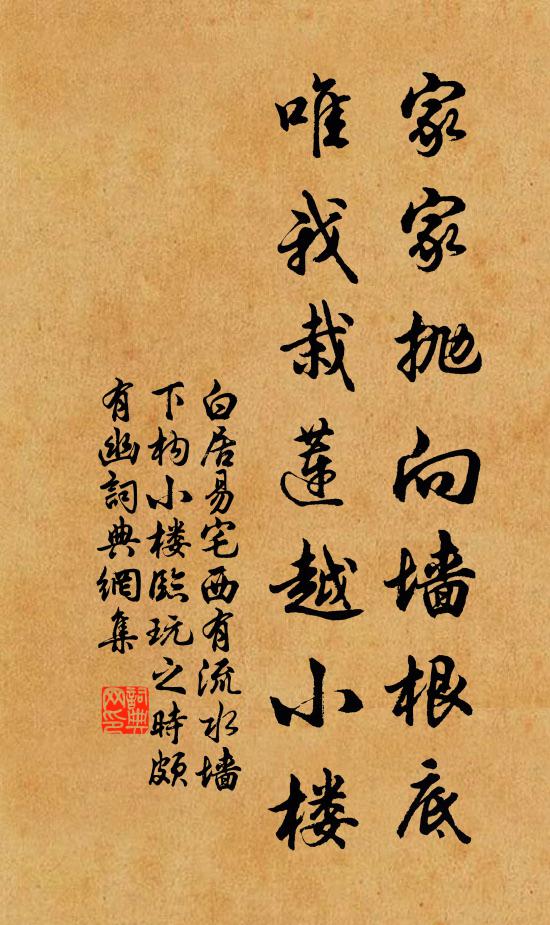 家家抛向墙根底
唯我栽蓮越小楼
白居易宅西有流水墙
下构小楼臨玩之時颇
有幽詞典網集
詞典网印